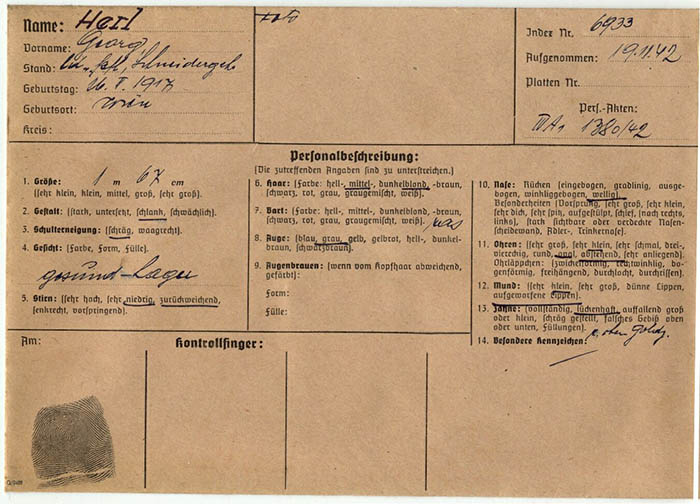 Name: Herl
Vorname: Georg
Stand: Schneidergeh
Geburtstag: 16. V. 1917
Geburtsort: Wien
Kreis:
Index Nr. 6933
Aufgenommen: 19.11.42
Platten Nr.
Pers.-Akten:
1380/42
Personalbeschreibung:
(Die zutreffenden Angaben sind zu unterstreichen.)
1. Größe: 1 m 67 cm
(sehr klein, klein, mittel, groß, sehr groß).
2. Gestalt: (stark, untersetzt, schlank, schwächlich).
3. Schulterneigung: (schräg, waagrecht).
4. Gesicht: (Farbe, Form, Fülle).
gesund
5. Stirn: (sehr hoch, sehr niedrig, zurückweichend,
senkrecht, vorspringend).
6. Haar: (Farbe: hell-, mittel-, dunkelblond, -braun,
schwarz, rot, grau, graugemischt, weiß).
7. Bart: (Farbe: hell-, mittel-, dunkelblond, -braun,
schwarz, rot, grau, graugemischt, weiß). ras
8. Auge: (blau, grau, gelb, gelbrot, hell-, dunkel-
braun, schwarzbraun).
9. Augenbrauen: (wenn vom Kopfhaar abweichend,
gefärbt):
Form:
Fülle:
10. Nase: Rücken (eingebogen, gradlinig, ausge-
bogen, winkliggebogen, wellig).
Besonderheiten (Vorsprung, sehr groß, sehr klein,
sehr dick, sehr spitz, aufgestülpt, schief, (nach rechts,
links), stark sichtbare oder verdeckte Nasen-
scheidewand, Adler-, Trinkernase).
11. Ohren: (sehr groß, sehr klein, sehr schmal, drei-,
viereckig, rund, oval, abstehend, sehr anliegend).
Ohrläppchen: (zwickelförmig, rechtwinklig, bo-
genförmig, freihängend, durchlocht, durchrissen).
12. Mund: (sehr klein, sehr groß, dünne Lippen,
aufgeworfene Lippen).
13. Zähne: (vollständig, lückenhaft, auffallend groß
oder klein, schräg gestellt, falsches Gebiß oben
oder unten, Füllungen). oben Goldz.
14. Besondere Kennzeichen:
Am:
Kontrollfinger: